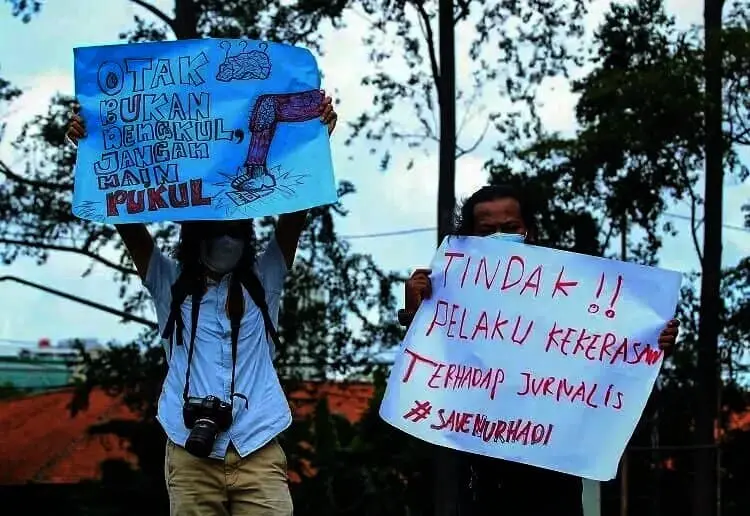 ???
OTAK
BUKAN
DENGKUL,
JANGAN
MAIN
PUKUL
TINDAK!!
PELAKU KEKERASAN
TERHADAP JURNALIS
#SAVENURHADI